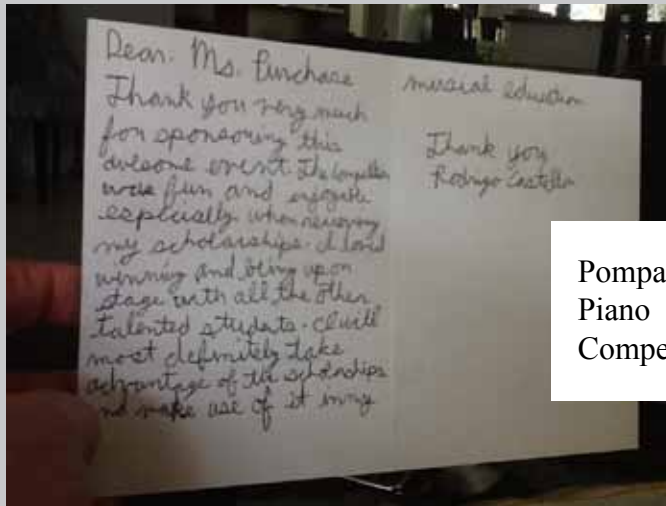 Dear. Ms. Purchase
Thank you very much
for sponsoring this
awesome event. The
was fun and enjoyable
especially when receiving
my scholarships. I loved
winning and being up on
stage with all the other
talented students. I will
most definitely take
advantage of the scholarships
and make use of it in my
musical education
Thank you
Rodrigo
Pompa
Piano
Compe